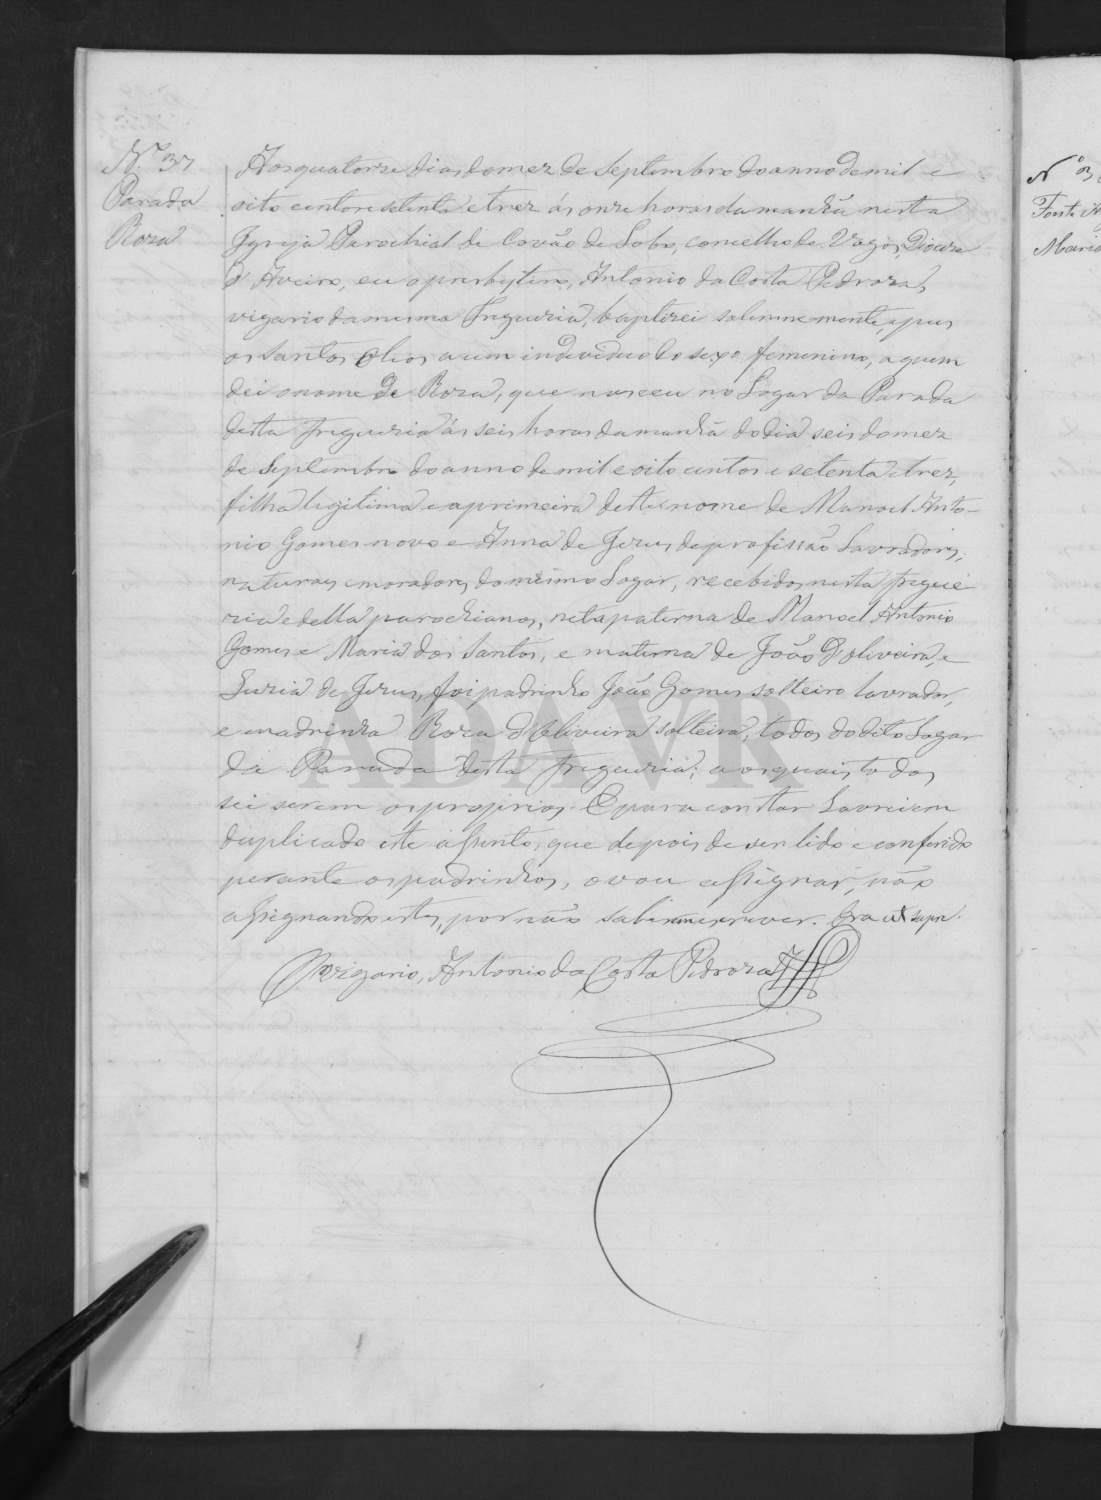 Nº 37
Parada
Roza
Aos quatorze dias do mez de Septembro do anno de mil e
oito centos e setenta e trez ás onze horas da manhã nesta
Igreja Parochial de Covão do Lobo, concelho de Vagos, Diocese
d'Aveiro, eu o presbytero, Antonio da Costa Pedroza,
vigario da mesma Freguezia, baptizei solemnemente, e puz
os santos Oleos a um individuo do sexo femenino, a quem
dei o nome De Roza, que nasceu no Logar da Parada
desta freguezia ás seis horas da manhã do dia seis do mez
de Septembro do anno de mil e oito centos e setenta e trez,
filha legitima e a primeira deste nome de Manoel Anto-
nio Gomes novo e Anna de Jesus, de profissão Lavradores,
naturaes e moradores do mesmo Logar, recebidos nesta fregue
zia e della parochianos, neta paterna de Manoel Antonio
Gomes e Maria dos Santos, e materna de João D'oliveira, e
Luzia de Jesus, foi padrinho João Gomes solteiro lavrador,
e madrinha Roza d'Oliveira solteira, todos do dito Logar
da Parada desta freguezia; aos quais todos
sei serem os proprios. E para constar Lavrei em
duplicado este assento, que depois de ser lido e conferido
perante os padrinhos, o vou assignar, não
assignando estes, por não saberem escrever. Era ut supra.
O vigario, Antonio da Costa Pedroza
ADAVR
Nº 3
Fonte
Maria